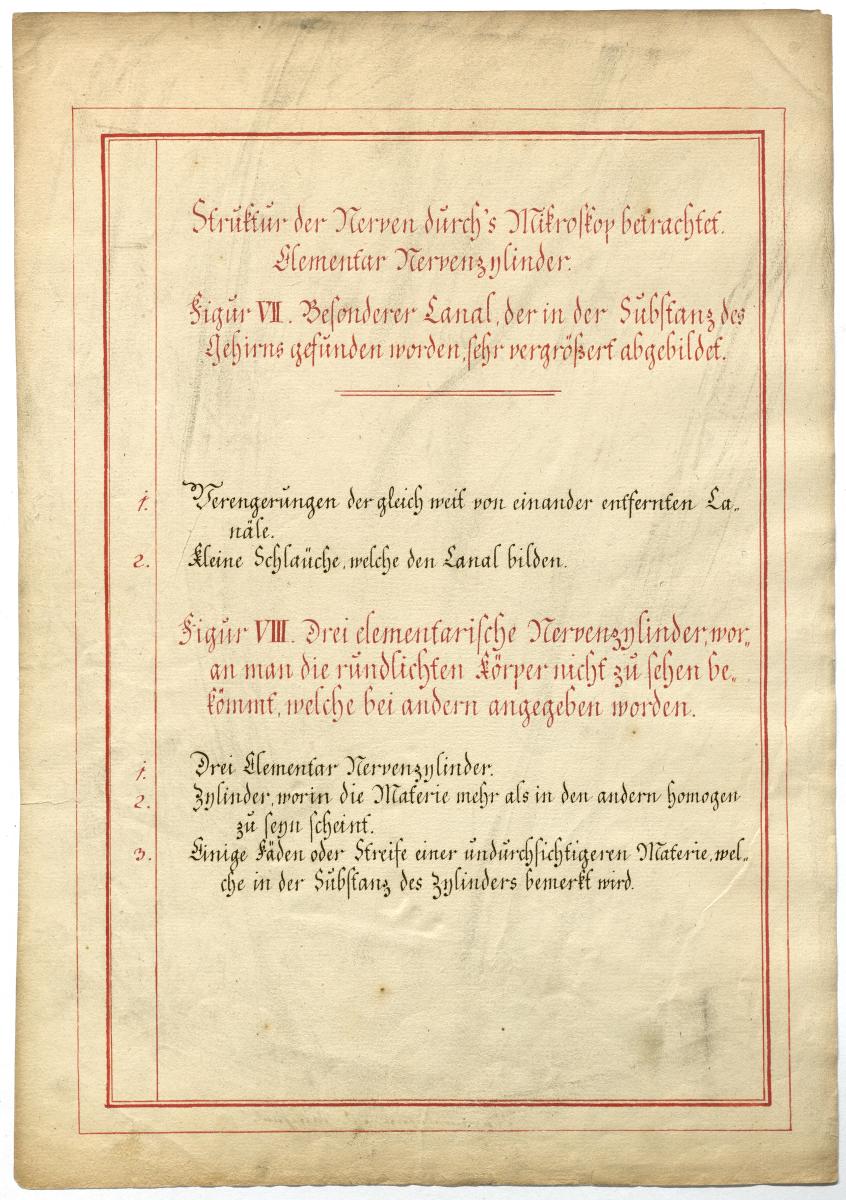 Struktur der Nerven durch's Mikroskop betrachtet.
Elementar Nervenzylinder.
Figur VII. Besonderer Canal, der in der Substanz des
Gehirns gefunden worden, sehr vergrößert abgebildet.
1. Verengerungen der gleich weit von einander entfernten Ca„
näle.
2. Kleine Schlaüche, welche den Canal bilden.
Figur VIII. Drei elementarische Nervenzylinder, wor„
an man die rundlichten Körper nicht zu sehen be„
kömmt, welche bei andern angegeben worden.
1. Drei Elementar Nervenzylinder.
2. Zylinder, worin die Materie mehr als in den andern homogen
zu seyn scheint.
3. Einige Fäden oder Streife einer undurchsichtigeren Materie, wel„
che in der Substanz des Zylinders bemerkt wird.